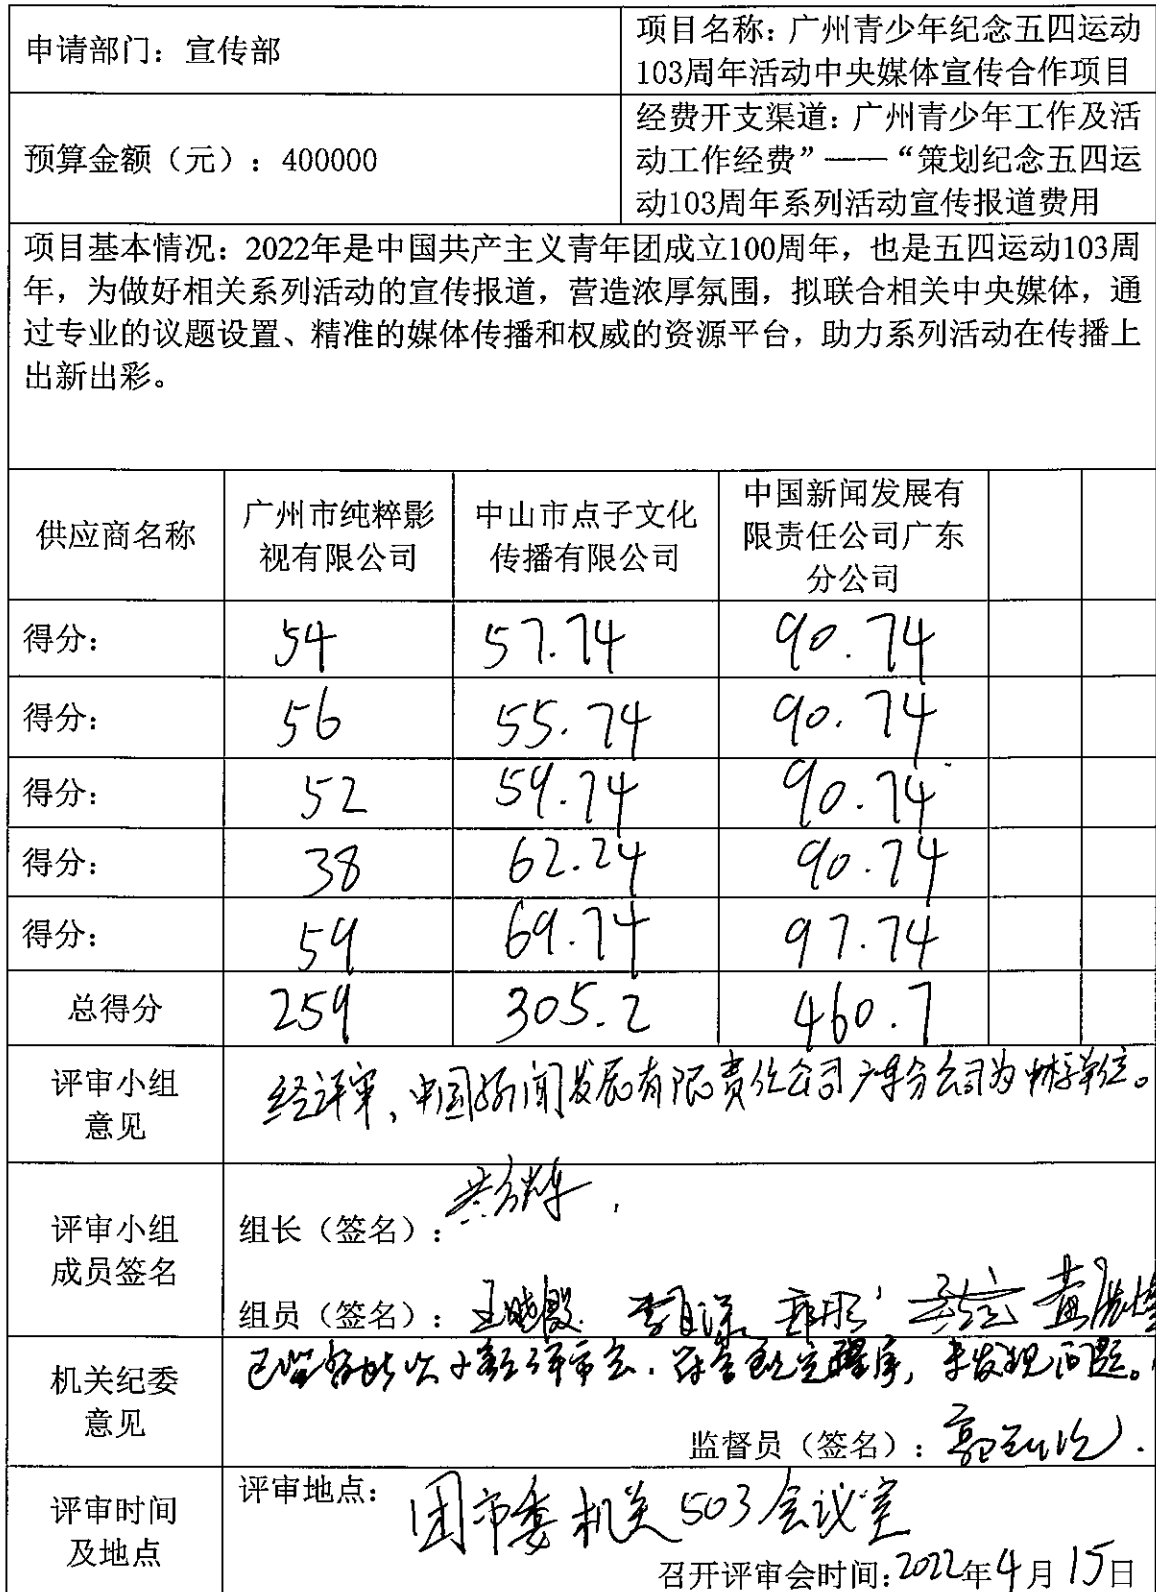 申请部门：宣传部
项目名称：广州青少年纪念五四运动
103周年活动中央媒体宣传合作项目
预算金额（元）：400000
经费开支渠道：广州青少年工作及活
动工作经费”——“策划纪念五四运
动103周年系列活动宣传报道费用
项目基本情况：2022年是中国共产主义青年团成立100周年，也是五四运动103周
年，为做好相关系列活动的宣传报道，营造浓厚氛围，拟联合相关中央媒体，通
过专业的议题设置、精准的媒体传播和权威的资源平台，助力系列活动在传播上
出新出彩。
供应商名称
广州市纯粹影
视有限公司
中山市点子文化
传播有限公司
中国新闻发展有
限责任公司广东
分公司
得分： 54 57.74 90.74
得分： 56 55.74 90.74
得分： 52 59.74 90.74
得分： 38 62.24 90.74
得分： 59 69.74 97.74
总得分 259 305.2 460.7
评审小组
意见
经评审，中国新闻发展有限责任公司广东分公司为中标单位。
评审小组
成员签名
组长（签名）：
组员（签名）：
机关纪委
意见
已监督此次小组评审会，符合规定程序，未发现问题。
监督员（签名）：
评审时间
及地点
评审地点：团市委机关503会议室
召开评审会时间：2022年4月15日